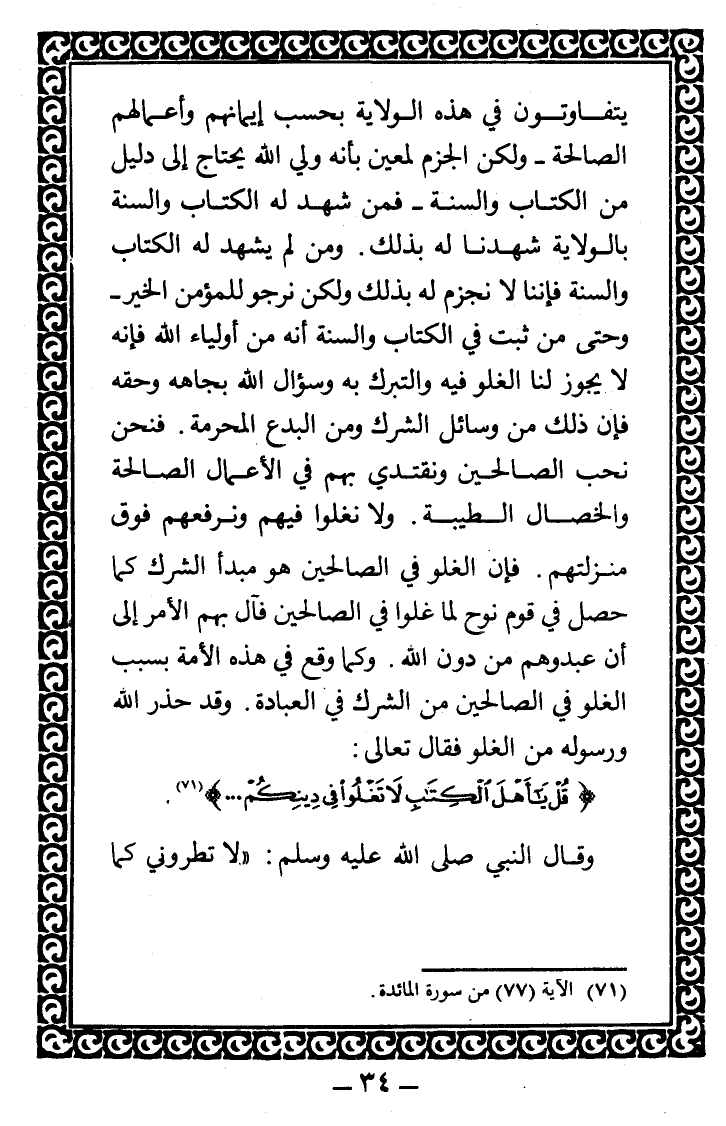 يتفـاوتـون في هذه الـولاية بحسب إيمانهم وأعـمالهم
الصالحة ـ ولكن الجزم لمعين بأنه ولي الله يحتاج إلى دليل
من الكتـاب والسنـة ـ فمن شهـد له الكتـاب والسنة
بالـولاية شهـدنـا له بذلك. ومن لم يشهد له الكتاب
والسنة فإننا لا نجزم له بذلك ولكن نرجو للمؤمن الخير ـ
وحتى من ثبت في الكتاب والسنة أنه من أولياء الله فإنه
لا يجوز لنا الغلو فيه والتبرك به وسؤال الله بجاهه وحقه
فإن ذلك من وسائل الشرك ومن البدع المحرمة. فنحن
نحب الصـالحـين ونقتـدي بهم في الأعـمال الصـالحة
والخصـال الـطيبـة. ولا نغلوا فيهم ونـرفعهم فوق
منـزلتهم. فإن الغلو في الصالحين هو مبدأ الشرك كما
حصل في قوم نوح لما غلوا في الصالحين فآل بهم الأمر إلى
أن عبدوهم من دون الله. وكما وقع في هذه الأمة بسبب
الغلو في الصالحين من الشرك في العبادة. وقد حذر الله
ورسوله من الغلو فقال تعالى:
﴿ قُلْ يَٰٓأَهْلَ ٱلْكِتَٰبِ لَا تَغْلُوا۟ فِى دِينِكُمْ...﴾(٧١).
وقـال النبي صلى الله عليه وسلم: «لا تطروني كما
(٧١) الآية (٧٧) من سورة المائدة.
ـ ٣٤ ـ